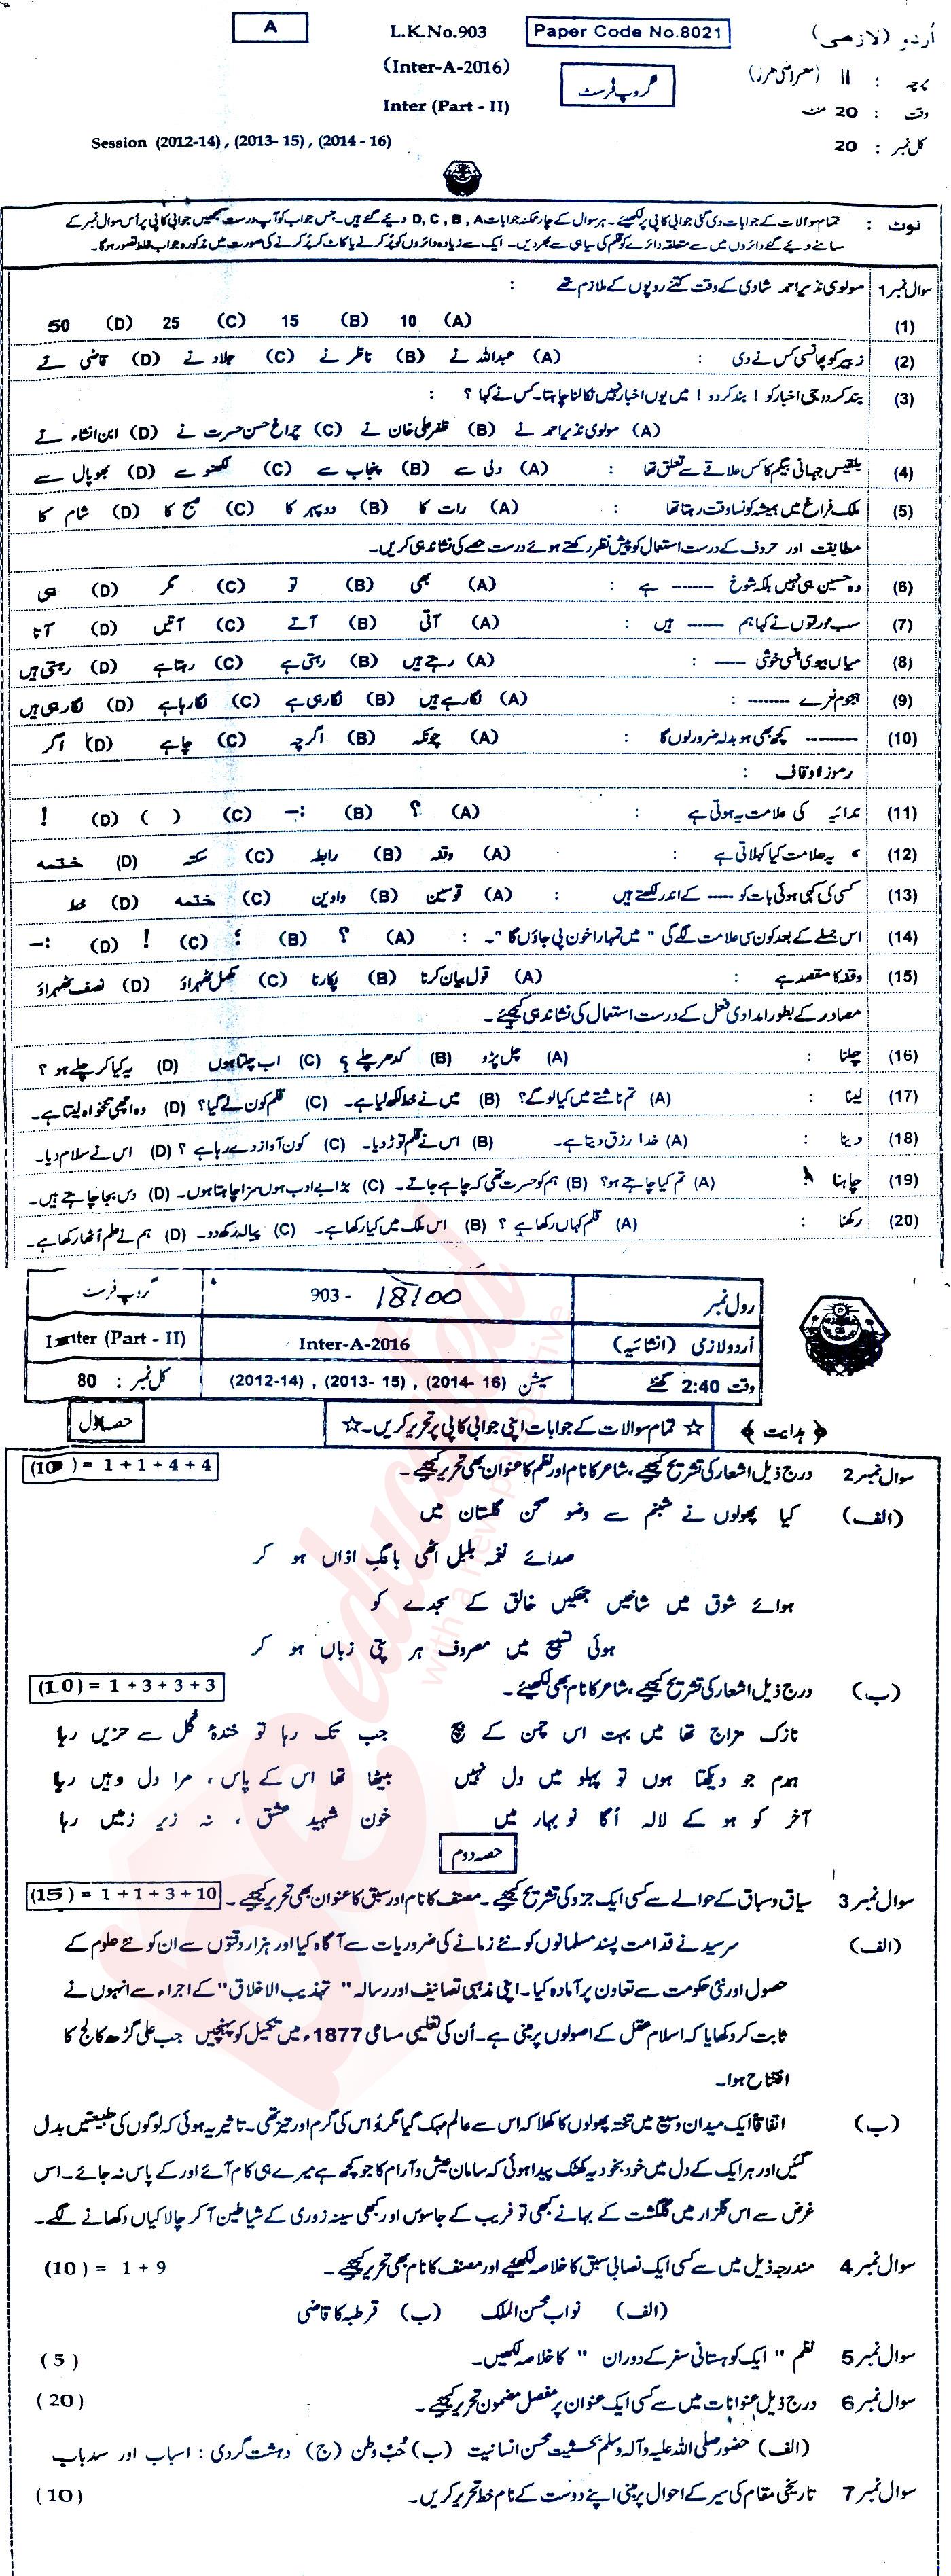 اُردو (لازمی) Paper Code No.8021 L.K.No.903 A
پرچہ : II (معروضی طرز) گروپ فرسٹ (Inter-A-2016)
وقت : 20 منٹ Inter (Part - II)
کل نمبر : 20 Session (2012-14) , (2013- 15) , (2014 - 16)
نوٹ : تمام سوالات کے جوابات دی گئی جوابی کاپی پر لکھیئے۔ ہر سوال کے چار ممکنہ جوابات D , C , B , A دیئے گئے ہیں۔ جس جواب کو آپ درست سمجھیں جوابی کاپی پر اُس سوال نمبر کے
سامنے دیئے گئے دائروں میں سے متعلقہ دائرے کو قلم کی سیاہی سے بھر دیں۔ ایک سے زیادہ دائروں کو پُر کرنے یا کاٹ کر پُر کرنے کی صورت میں مذکورہ جواب غلط تصور ہو گا۔
سوال نمبر 1 مولوی نذیر احمد شادی کے وقت کتنے روپوں کے ملازم تھے :
(1) (A) 10 (B) 15 (C) 25 (D) 50
(2) زبیر کو پھانسی کس نے دی : (A) عبداللہ نے (B) ناظر نے (C) جلاد نے (D) قاضی نے
(3) بند کر دو جی اخبار کو ! بند کر دو ! میں یوں اخبار نہیں نکالنا چاہتا۔ کس نے کہا ؟ :
(A) مولوی نذیر احمد نے (B) ظفر علی خان نے (C) چراغ حسن حسرت نے (D) ابن انشاء نے
(4) بلقیس جہانی بیگم کا کس علاقے سے تعلق تھا : (A) دلی سے (B) پنجاب سے (C) لکھنو سے (D) بھوپال سے
(5) ملک فراغ میں ہمیشہ کونسا وقت رہتا تھا : (A) رات کا (B) دوپہر کا (C) صبح کا (D) شام کا
مطابقت اور حروف کے درست استعمال کو پیش نظر رکھتے ہوئے درست حصے کی نشاندہی کریں۔
(6) وہ حسین ہی نہیں بلکہ شوخ ------- ہے : (A) بھی (B) تو (C) مگر (D) ہی
(7) سب عورتوں نے کہا ہم ------ ہیں : (A) آتی (B) آتے (C) آتیں (D) آتا
(8) میاں بیوی ہنسی خوشی ----- : (A) رہتے ہیں (B) رہتی ہے (C) رہتا ہے (D) رہتی ہیں
(9) ہجوم نعرے -------- : (A) لگا رہے ہیں (B) لگا رہی ہے (C) لگا رہا ہے (D) لگا رہی ہیں
(10) --------- کچھ بھی ہو بدلہ ضرور لوں گا : (A) چونکہ (B) اگرچہ (C) چاہے (D) اگر
رموز اوقاف :
(11) ندائیہ کی علامت یہ ہوتی ہے : (A) ؟ (B) :- (C) ( ) (D) !
(12) ، یہ علامت کیا کہلاتی ہے : (A) وقفہ (B) رابطہ (C) سکتہ (D) ختمہ
(13) کسی کی کہی ہوئی بات کو ----- کے اندر لکھتے ہیں : (A) قوسین (B) واوین (C) ختمہ (D) خط
(14) اس جملے کے بعد کون سی علامت لگے گی " میں تمہارا خون پی جاؤں گا "۔ : (A) ؟ (B) ؛ (C) ! (D) :-
(15) وقفہ کا مقصد ہے : (A) قول بیان کرنا (B) پکارنا (C) مکمل ٹھہراؤ (D) نصف ٹھہراؤ
مصادر کے بطور امدادی فعل کے درست استعمال کی نشاندہی کیجیئے۔
(16) چلنا : (A) چل پڑو (B) کدھر چلے ؟ (C) اب چلتا ہوں (D) یہ کیا کر چلے ہو ؟
(17) لینا : (A) تم ناشتے میں کیا لو گے؟ (B) میں نے خط لکھ لیا ہے۔ (C) قلم کون لے گیا؟ (D) وہ اچھی تنخواہ لیتا ہے۔
(18) دینا : (A) خدا رزق دیتا ہے۔ (B) اس نے قلم توڑ دیا۔ (C) کون آواز دے رہا ہے ؟ (D) اس نے سلام دیا۔
(19) چاہنا : (A) تم کیا چاہتے ہو؟ (B) ہم کو حسرت تھی کہ چاہے جاتے۔ (C) بڑا بے ادب ہوں سزا چاہتا ہوں۔ (D) دس بجا چاہتے ہیں۔
(20) رکھنا : (A) قلم کہاں رکھا ہے ؟ (B) اس ملک میں کیا رکھا ہے۔ (C) پیالہ رکھ دو۔ (D) ہم نے علم اُٹھا رکھا ہے۔
رول نمبر 903 - 18100 گروپ فرسٹ
اُردو لازمی (انشائیہ) Inter-A-2016 Inter (Part - II)
وقت 2:40 گھنٹے سیشن (2012-14) , (2013- 15) , (2014- 16) کل نمبر : 80
﴿ ہدایت ﴾ ☆ تمام سوالات کے جوابات اپنی جوابی کاپی پر تحریر کریں۔ ☆ حصہ اول
سوال نمبر 2 درج ذیل اشعار کی تشریح کیجیئے ، شاعر کا نام اور نظم کا عنوان بھی تحریر کیجیئے۔ (10) = 1 + 1 + 4 + 4
(الف) کیا پھولوں نے شبنم سے وضو صحن گلستان میں
صدائے نغمہ بلبل اُٹھی بانگِ اذاں ہو کر
ہوائے شوق میں شاخیں جھکیں خالق کے سجدے کو
ہوئی تسبیح میں مصروف ہر پتی زباں ہو کر
(ب) درج ذیل اشعار کی تشریح کیجیئے ، شاعر کا نام بھی لکھیئے۔ (10) = 1 + 3 + 3 + 3
نازک مزاج تھا میں بہت اس چمن کے بیچ جب تک رہا تو خندۂ گل سے حزیں رہا
ہمدم جو دیکھتا ہوں تو پہلو میں دل نہیں بیٹھا تھا اس کے پاس ، مرا دل وہیں رہا
آخر کو ہو کے لالہ اُگا نو بہار میں خون شہید عشق ، نہ زیر زمیں رہا
حصہ دوم
سوال نمبر 3 سیاق و سباق کے حوالے سے کسی ایک جزو کی تشریح کیجیئے۔ مصنف کا نام اور سبق کا عنوان بھی تحریر کیجیئے۔ (15) = 1 + 1 + 3 + 10
(الف) سرسید نے قدامت پسند مسلمانوں کو نئے زمانے کی ضروریات سے آگاہ کیا اور ہزار دقتوں سے ان کو نئے علوم کے
حصول اور نئی حکومت سے تعاون پر آمادہ کیا۔ اپنی مذہبی تصانیف اور رسالہ " تہذیب الاخلاق " کے اجراء سے انہوں نے
ثابت کر دکھایا کہ اسلام عقل کے اصولوں پر مبنی ہے۔ اُن کی تعلیمی مساعی 1877ء میں تکمیل کو پہنچیں جب علی گڑھ کالج کا
افتتاح ہوا۔
(ب) اتفاقاً ایک میدان وسیع میں تختہ پھولوں کا کھلا کہ اس سے عالم مہک گیا مگر بُو اس کی گرم اور تیز تھی۔ تاثیر یہ ہوئی کہ لوگوں کی طبیعتیں بدل
گئیں اور ہر ایک کے دل میں خود بخود یہ کھٹک پیدا ہوئی کہ سامان عیش و آرام کا جو کچھ ہے میرے ہی کام آئے اور کے پاس نہ جائے۔ اس
غرض سے اس گلزار میں گلگشت کے بہانے کبھی تو فریب کے جاسوس اور کبھی سینہ زوری کے شیاطین آ کر چالاکیاں دکھانے لگے۔
سوال نمبر 4 مندرجہ ذیل میں سے کسی ایک نصابی سبق کا خلاصہ لکھیئے اور مصنف کا نام بھی تحریر کیجیئے۔ (10) = 1 + 9
(الف) نواب محسن الملک (ب) قرطبہ کا قاضی
سوال نمبر 5 نظم " ایک کوہستانی سفر کے دوران " کا خلاصہ لکھیں۔ (5)
سوال نمبر 6 درج ذیل عنوانات میں سے کسی ایک عنوان پر مفصل مضمون تحریر کیجیئے۔ (20)
(الف) حضور صلی اللہ علیہ وآلہ وسلم بحیثیت محسن انسانیت (ب) حُبِّ وطن (ج) دہشت گردی : اسباب اور سدباب
سوال نمبر 7 تاریخی مقام کی سیر کے احوال پر مبنی اپنے دوست کے نام خط تحریر کریں۔ (10)